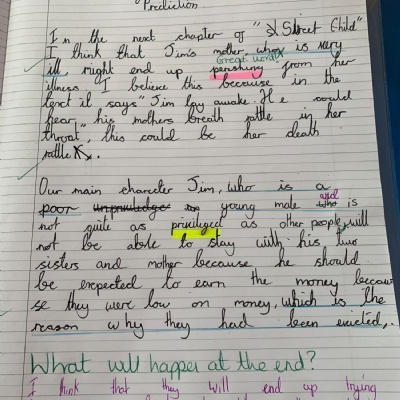 Prediction
In the next chapter of "Street Child"
I think that Jim's mother, who is very
Great word
ill, might end up perishing from her
illness. I believe this because in the
text it says "Jim lay awake. He could
hear his mothers breath rattle in her
throat", this could be her death
rattle.
Our main charecter Jim, who is a
poor unpriviledge young male and who is
not quite as privileged as other people, will
not be able to stay with his two
sisters and mother because he should
be expected to earn the money becau
se they were low on money, which is the
reason why they had been evicted,.
What will happen at the end?
I think that they will end up trying